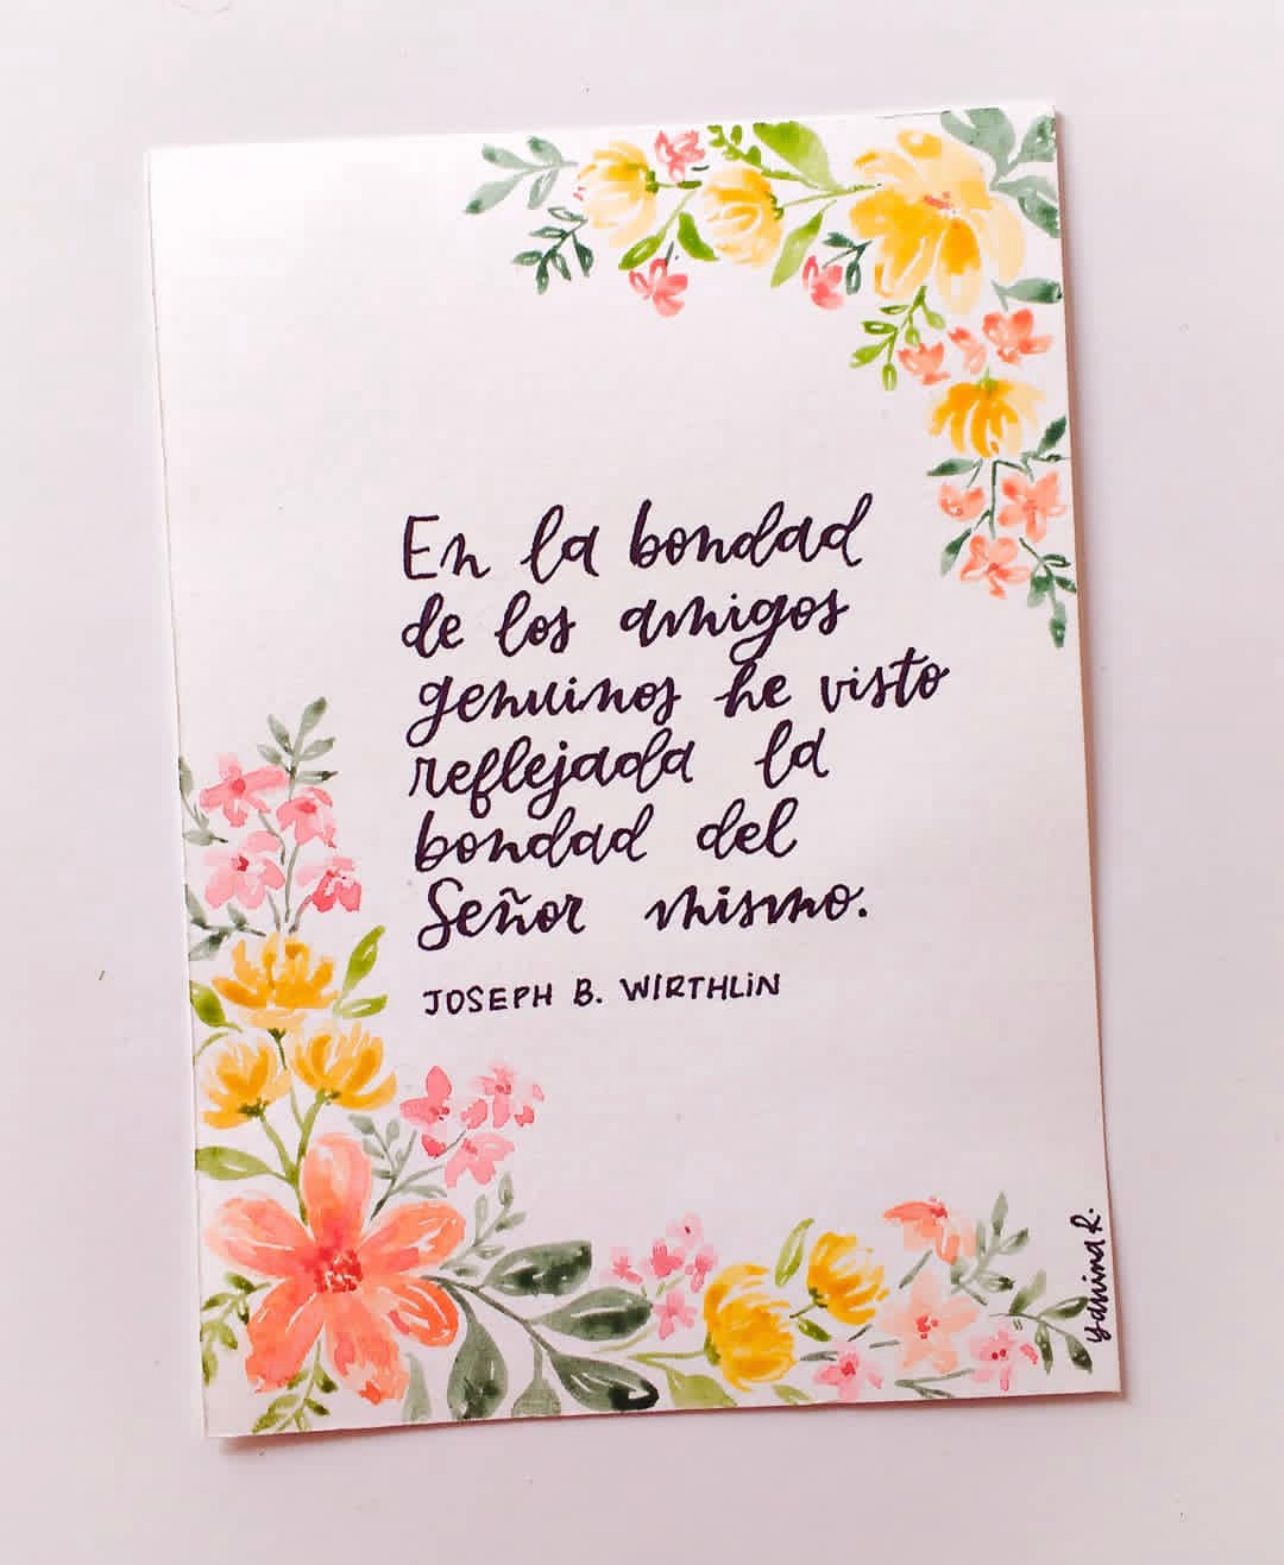 En la bondad
de los amigos
genuinos he visto
reflejada la
bondad del
Señor mismo.
JOSEPH B. WIRTHLIN
Yanina R.